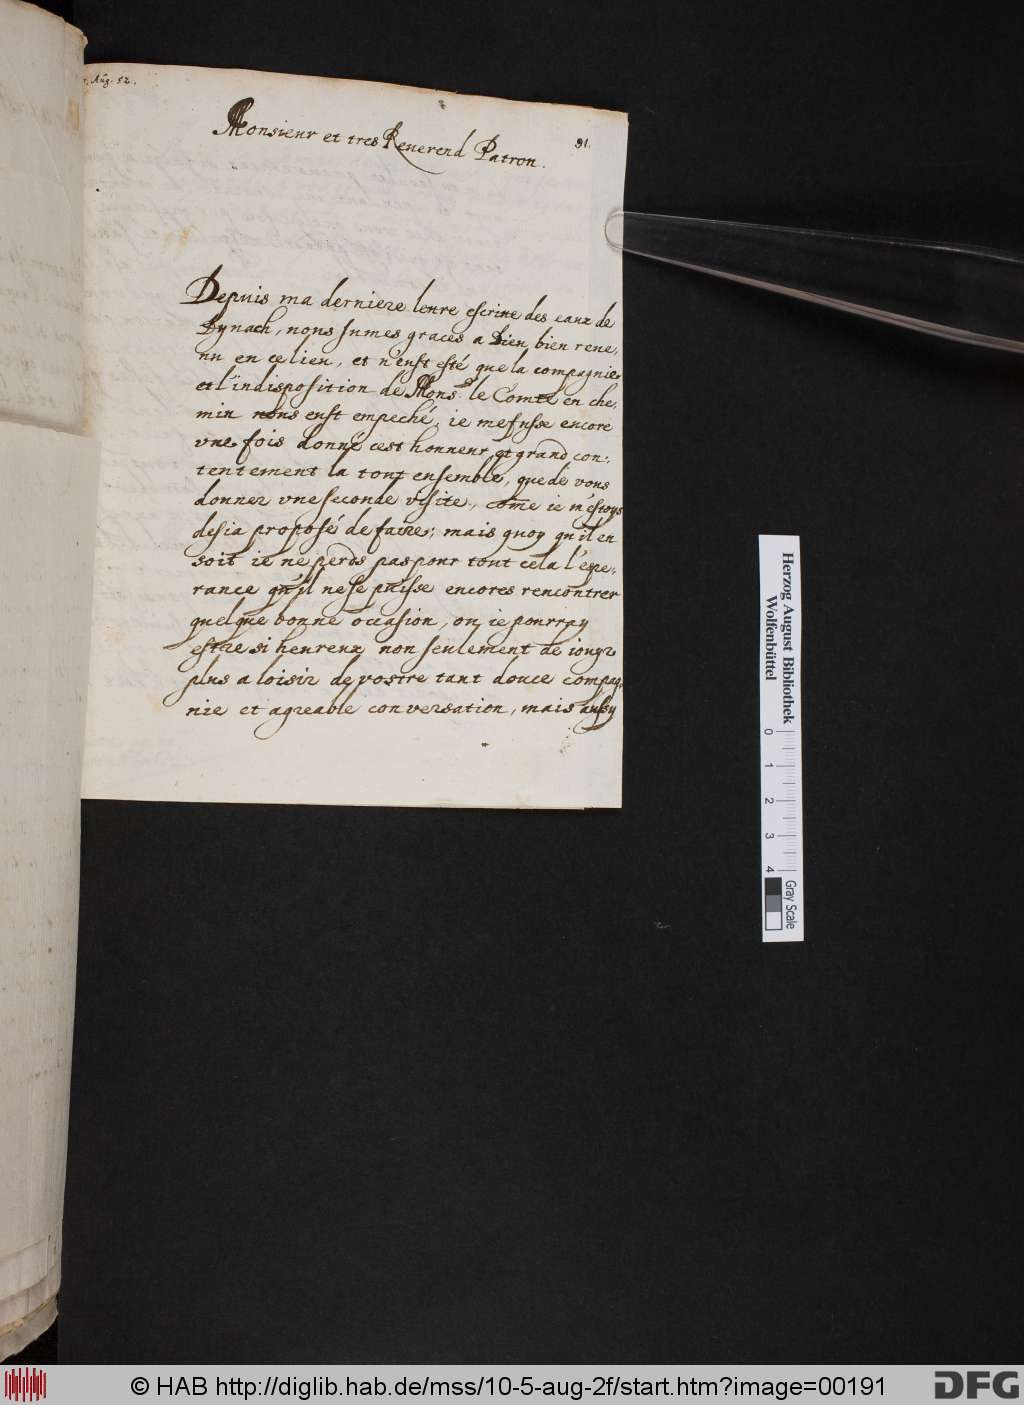 Aug. 52.
91.
Monsieur et tres Reverend Patron.
Depuis ma derniere lettre escritte des eaux de
Synach, nous sumes graces a Dieu bien reve,
nu en ce lieu, et n'eust esté que la compagnie,
et l'indisposition de Mons.r le Comte en che,
min nous eust empeché, ie me fusse encore
une fois donné cest honneur, et grand con:,
tentement la tout ensemble, que de vous
donner une seconde visite, come ie m'estoys
desia proposé de faire; mais quoy qu'il en
soit ie ne perds pas pour tout cela l'espe,
rance qu'il ne se puisse encores rencontrer
quelque bonne occasion, ou ie pourray
estre si heureux non seulement de iouyr
plus a loisir de vostre tant douce compag,
nie et agreable conversation, mais aussy
Herzog August Bibliothek
Wolfenbüttel
0 1 2 3 4
Gray Scale
© HAB http://diglib.hab.de/mss/10-5-aug-2f/start.htm?image=00191
DFG